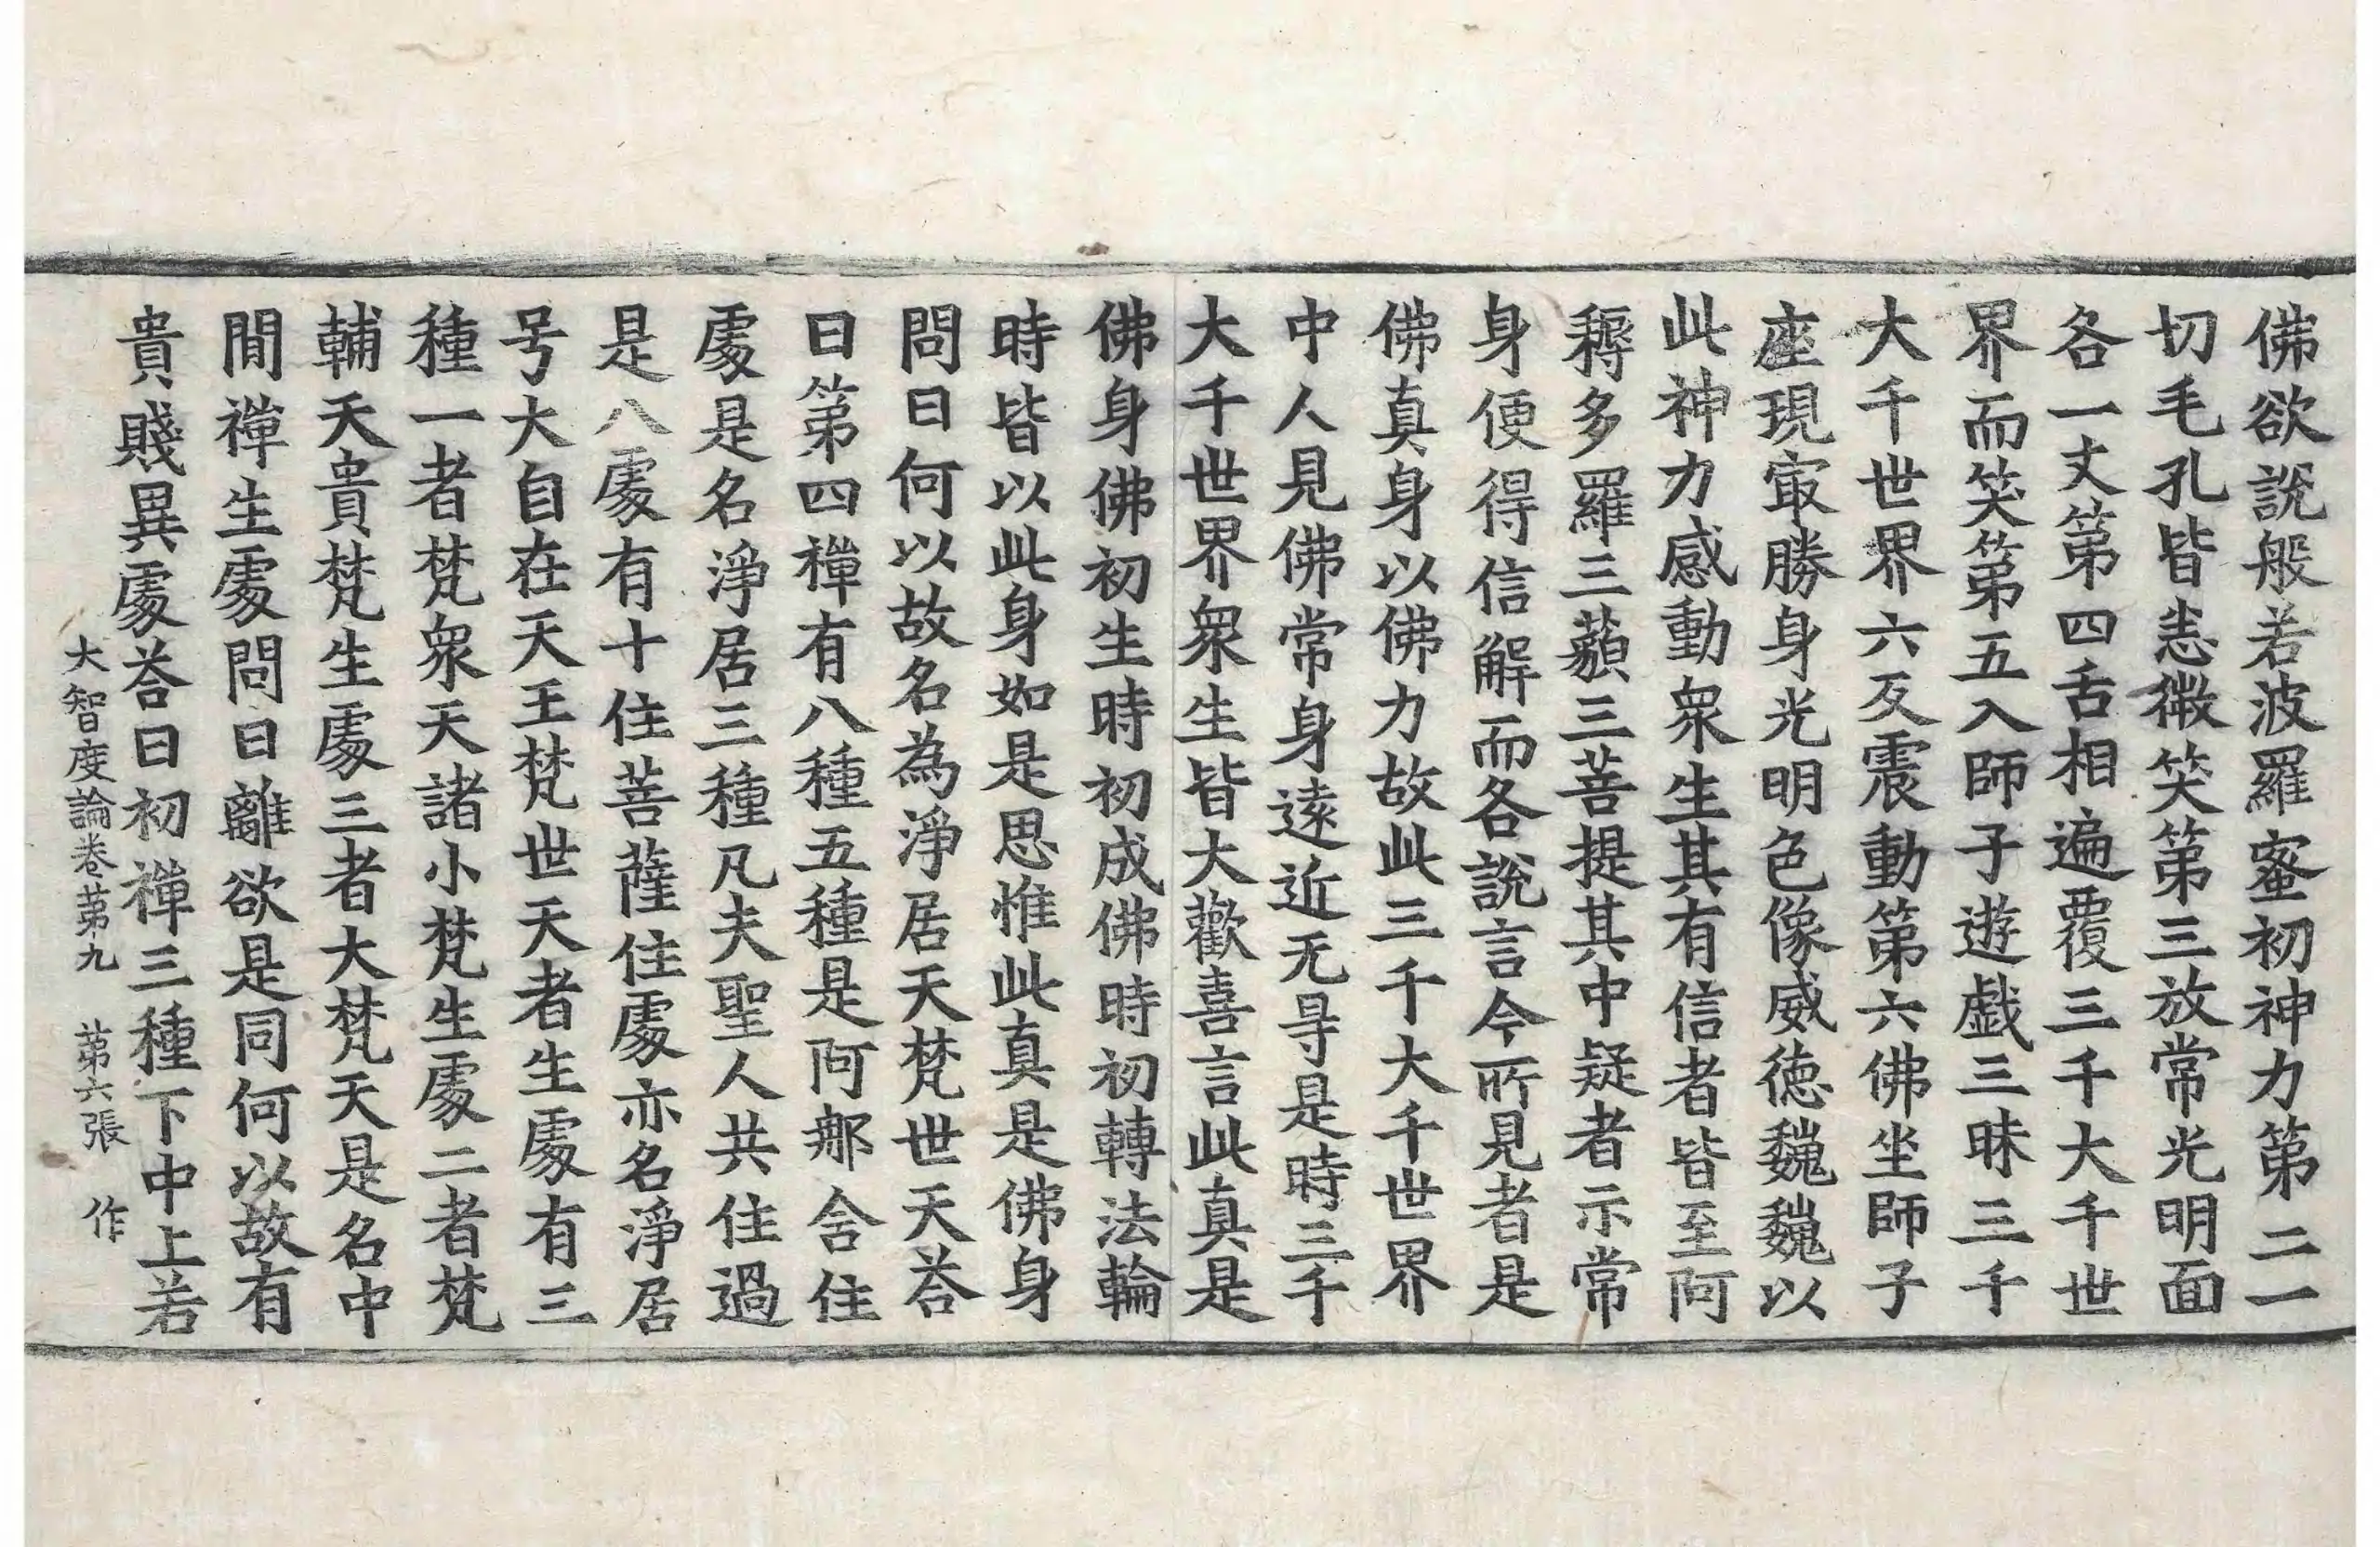 佛欲說般若波羅蜜初神力第二一
切毛孔皆恙微笑第三放常光明面
各一丈第四舌相遍覆三千大千世
界而笑第五入師子遊戲三昧三千
大千世界六反震動第六佛坐師子
座現㝡勝身光明色像威德巍巍以
此神力感動衆生其有信者皆至阿
耨多羅三藐三菩提其中疑者示常
身便得信解而各說言今所見者是
佛真身以佛力故此三千大千世界
中人見佛常身遠近无㝵是時三千
大千世界衆生皆大歡喜言此真是
佛身佛初生時初成佛時初轉法輪
時皆以此身如是思惟此真是佛身
問曰何以故名為淨居天梵世天荅
曰第四禪有八種五種是阿那含住
處是名淨居三種凡夫聖人共住過
是八處有十住菩薩住處亦名淨居
号大自在天王梵世天者生處有三
種一者梵衆天諸小梵生處二者梵
輔天貴梵生處三者大梵天是名中
閒禪生處問曰離欲是同何以故有
貴賤異處荅曰初禪三種下中上若
大智度論卷第九 第六張 作